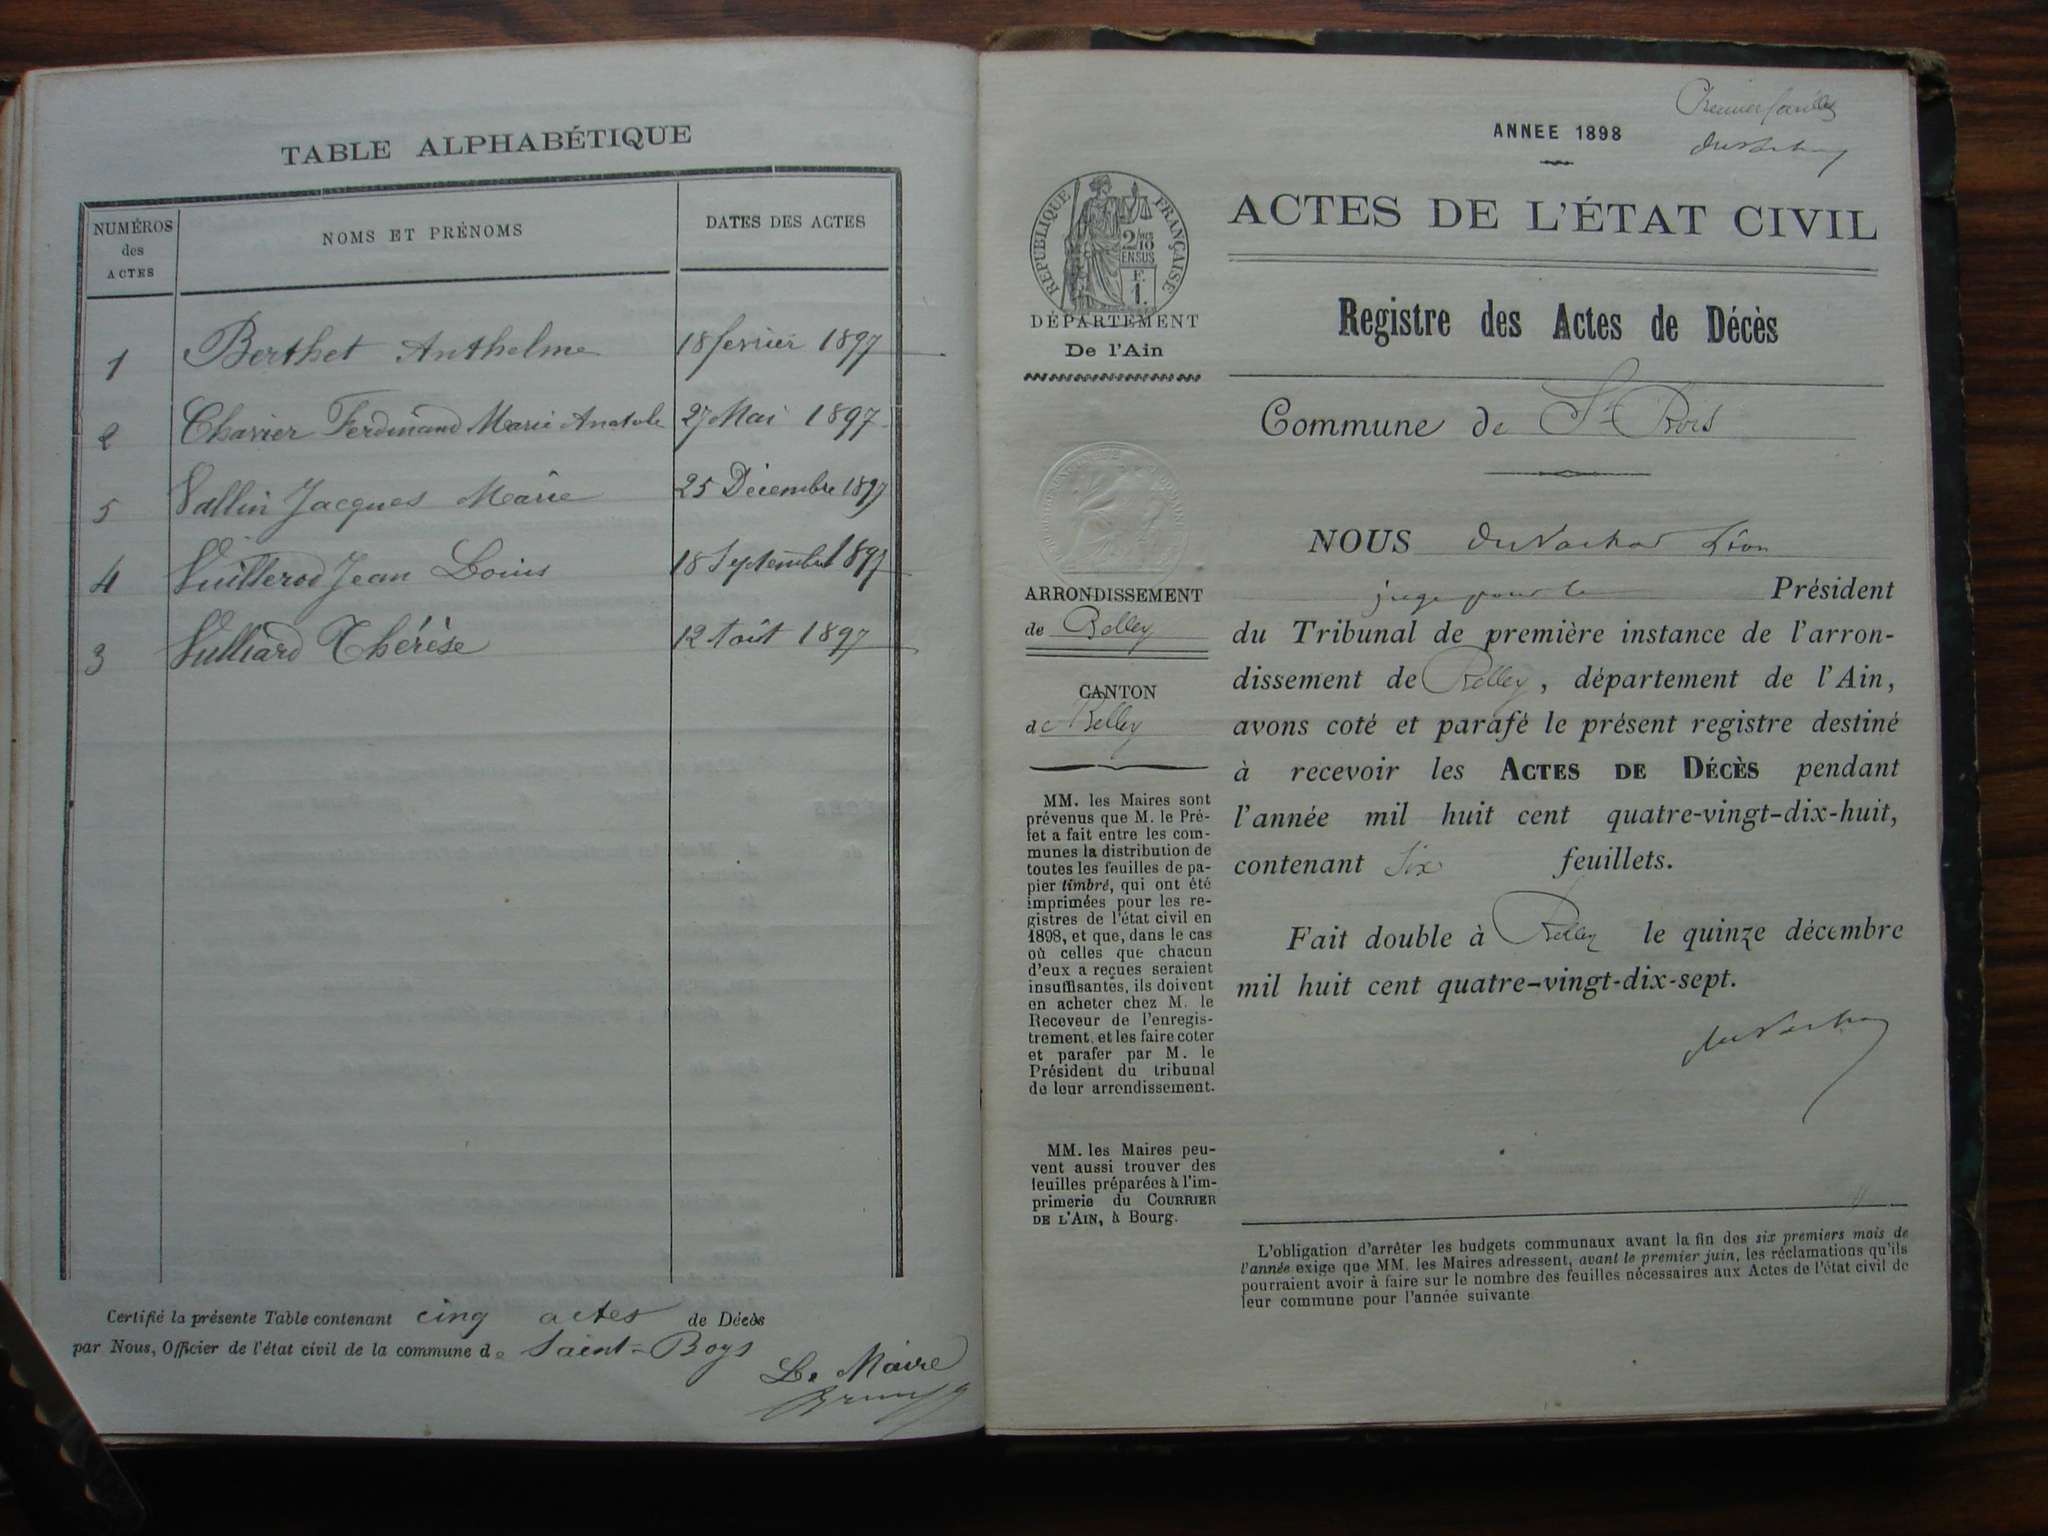 TABLE ALPHABÉTIQUE
NUMÉROS des ACTES
NOMS ET PRÉNOMS
DATES DES ACTES
1 Berthet Anthelme 18 fevrier 1897
2 Charrier Ferdinand Marie Anatole 27 Mai 1897
5 Vallin Jacques Marie 25 Décembre 1897
4 Vuillerod Jean Louis 18 Septembre 1897
3 Vulliard Thérèse 12 Août 1897
Certifié la présente Table contenant cinq actes de Décès
par Nous, Officier de l'état civil de la commune de Saint-Boys
Le Maire
Premier feuillet
ANNEE 1898
ACTES DE L'ÉTAT CIVIL
RÉPUBLIQUE FRANÇAISE
2/10
EN SUS
F.
1.
DÉPARTEMENT
De l'Ain
Registre des Actes de Décès
Commune de St Bois
ARRONDISSEMENT
de Belley
CANTON
de Belley
MM. les Maires sont
prévenus que M. le Pré-
fet a fait entre les com-
munes la distribution de
toutes les feuilles de pa-
pier timbré, qui ont été
imprimées pour les re-
gistres de l'état civil en
1898, et que, dans le cas
où celles que chacun
d'eux a reçues seraient
insuffisantes, ils doivent
en acheter chez M. le
Receveur de l'enregis-
trement, et les faire coter
et parafer par M. le
Président du tribunal
de leur arrondissement.
MM. les Maires peu-
vent aussi trouver des
feuilles préparées à l'im-
primerie du COURRIER
DE L'AIN, à Bourg.
NOUS Léon
juge pour le Président
du Tribunal de première instance de l'arron-
dissement de Belley, département de l'Ain,
avons coté et parafé le présent registre destiné
à recevoir les ACTES DE DÉCÈS pendant
l'année mil huit cent quatre-vingt-dix-huit,
contenant Six feuillets.
Fait double à Belley le quinze décembre
mil huit cent quatre-vingt-dix-sept.
L'obligation d'arrêter les budgets communaux avant la fin des six premiers mois de
l'année exige que MM. les Maires adressent, avant le premier juin, les réclamations qu'ils
pourraient avoir à faire sur le nombre des feuilles nécessaires aux Actes de l'état civil de
leur commune pour l'année suivante